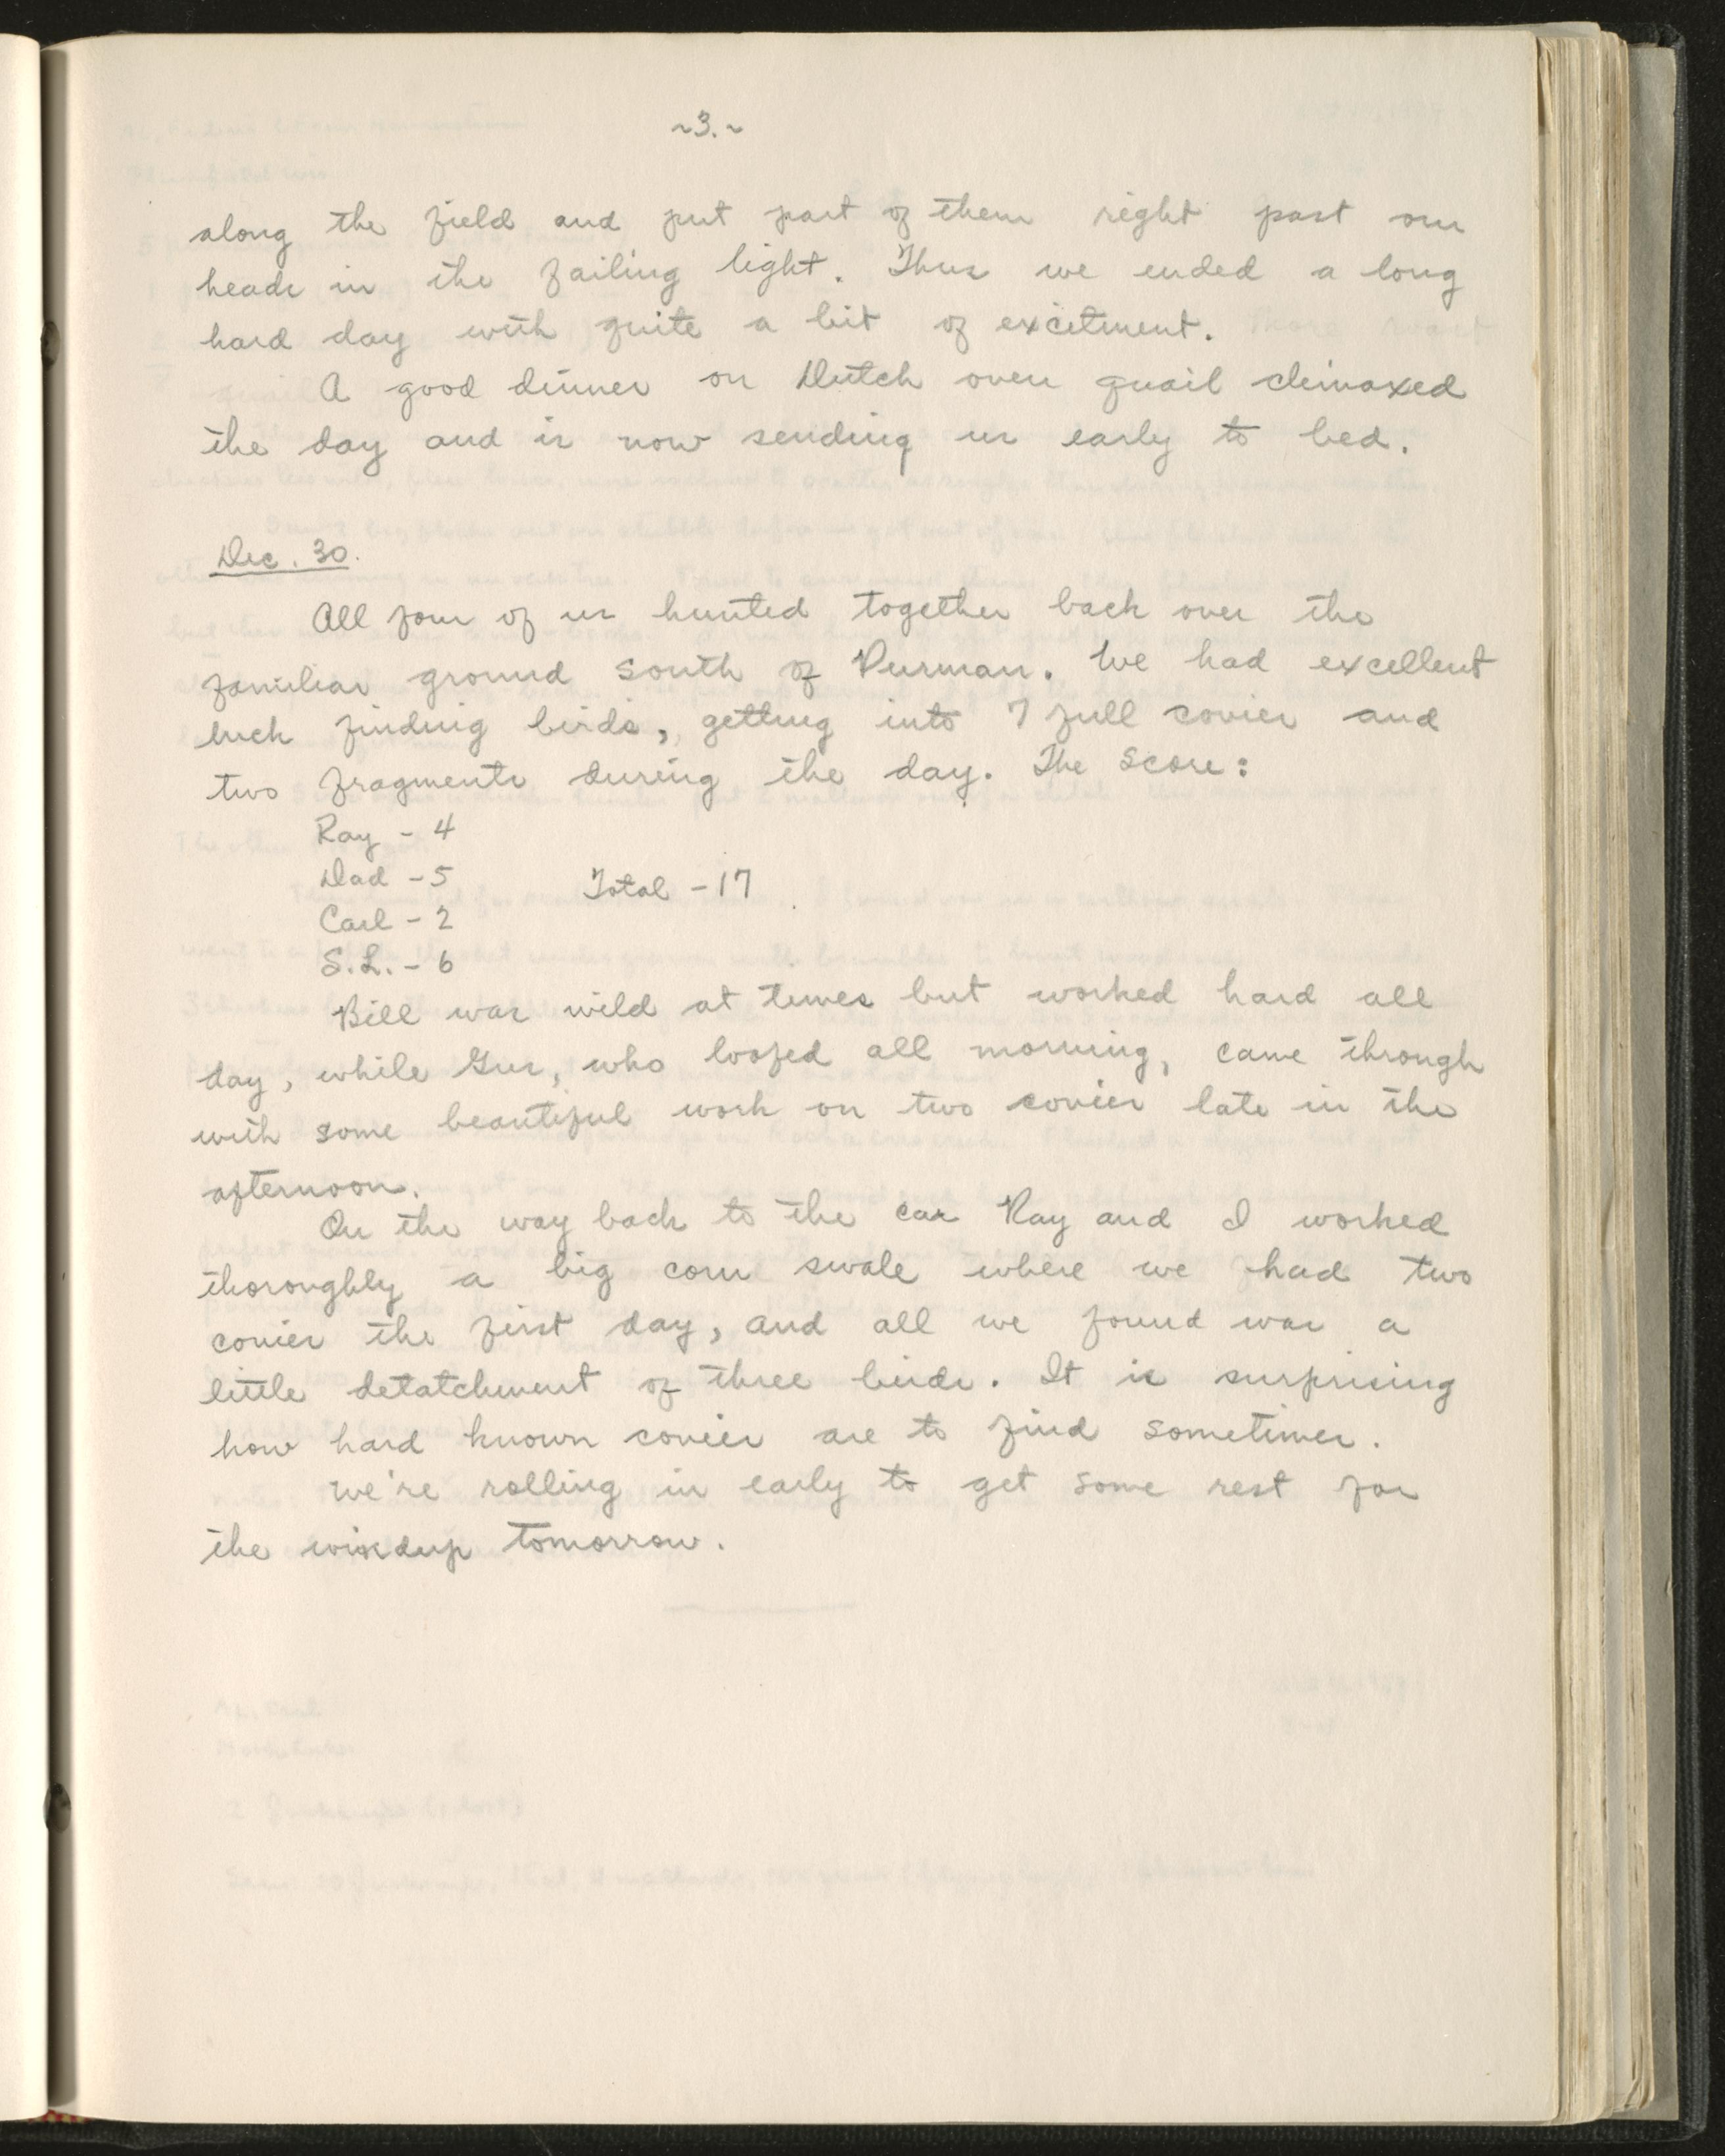 ~3.~
along the field and put part of them right past our
heads in the failing light. Thus we ended a long
hard day with quite a bit of excitment.
A good dinner on Dutch oven quail climaxed
the day and is now sending us early to bed.
Dec. 30.
All four of us hunted together back over the
familiar ground south of Durman. We had excellent
luck finding birds, getting into 7 full covies and
two fragments during the day. The score:
Ray - 4
Dad - 5 Total - 17
Carl - 2
S.L. - 6
Bill was wild at times but worked hard all
day, while Gus, who loafed all morning, came through
with some beautiful work on two covies late in the
afternoon.
On the way back to the car Ray and I worked
thoroughly a big corn swale where we had two
covies the first day, and all we found was a
little detatchment of three birds. It is surprising
how hard known covies are to find sometimes.
We're rolling in early to get some rest for
the windup tomorrow.